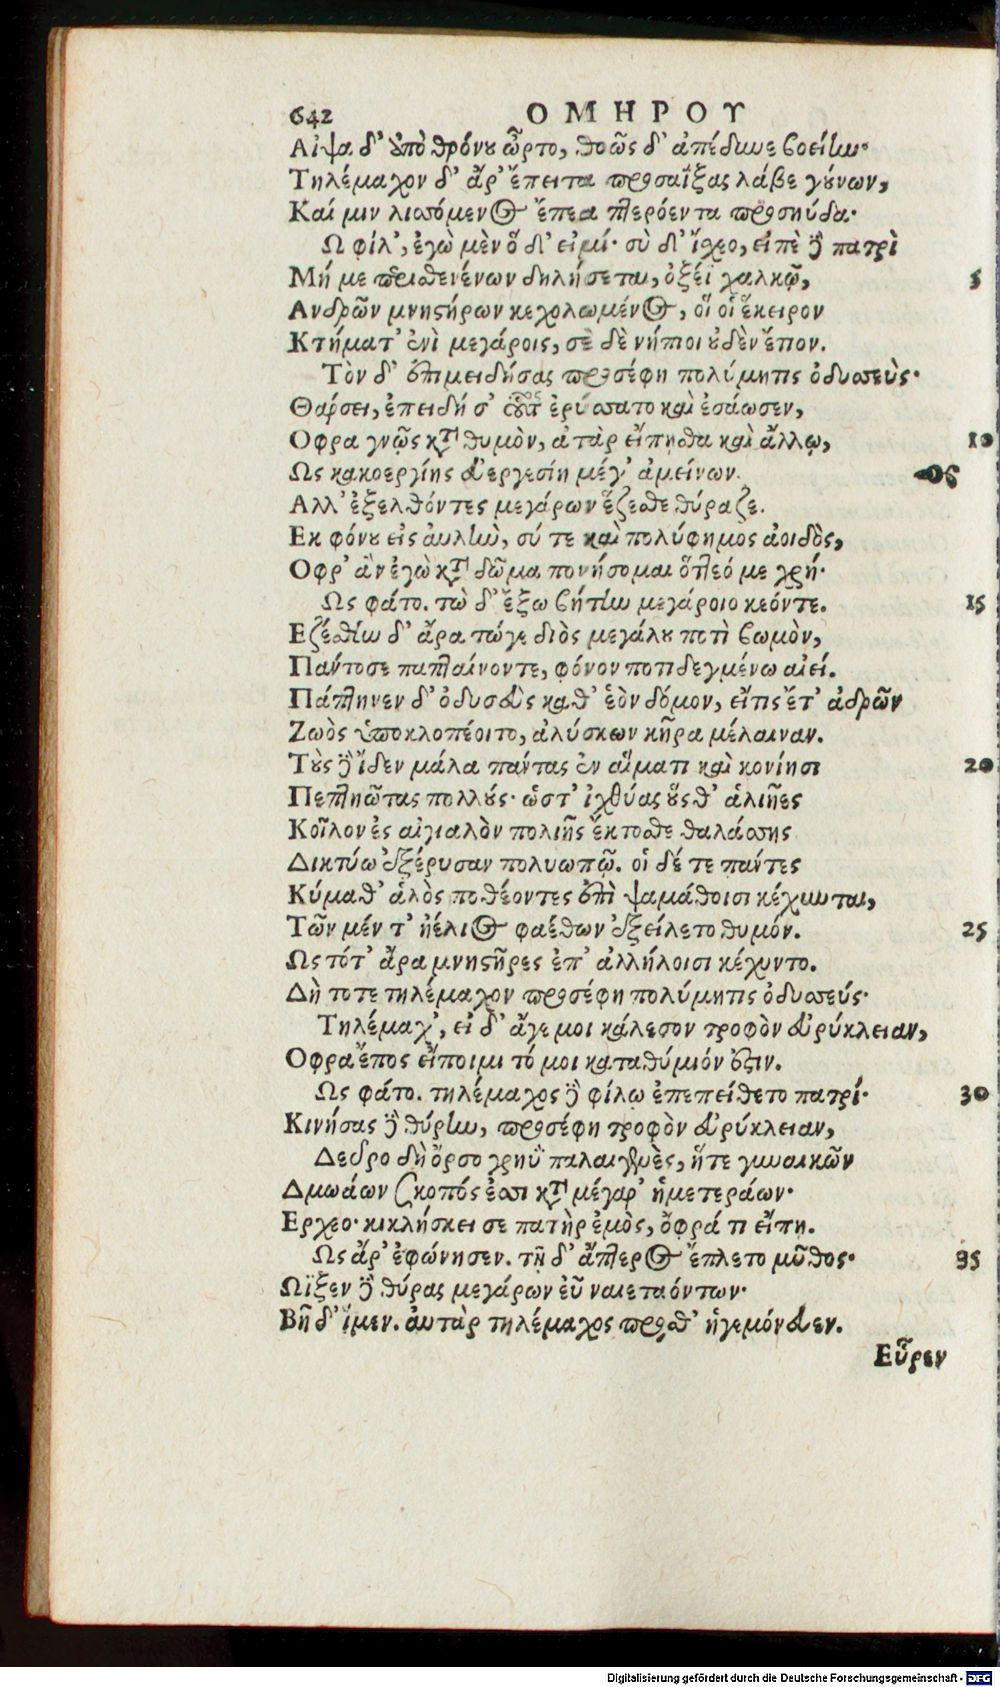 642 ΟΜΗΡΟΥ
Αἶψα δ' ὑπὸ θρόνου ὦρτο, θοῶς δ' ἀπέδυνε βοείην·
Τηλέμαχον δ' ἄρ' ἔπειτα προσαΐξας λάβε γούνων,
Καί μιν λισσόμενος ἔπεα πτερόεντα προσηύδα·
Ω φίλ', ἐγὼ μὲν ὅδ' εἰμί· σὺ δ' ἴσχεο, εἰπὲ δὲ πατρὶ
Μή με περισθενέων δηλήσεται, ὀξέϊ χαλκῷ, 5
Ανδρῶν μνηστήρων κεχολωμένος, οἵ οἱ ἔκειρον
Κτήματ' ἐνὶ μεγάροις, σὲ δὲ νήπιοι οὐδὲν ἔτιον.
Τὸν δ' ἐπιμειδήσας προσέφη πολύμητις ὀδυσσεὺς·
Θάρσει, ἐπειδή σ' οὗτος ἐρύσσατο καὶ ἐσάωσεν,
Οφρα γνῷς κατὰ θυμὸν, ἀτὰρ εἴπῃσθα καὶ ἄλλῳ, 10
Ως κακοεργίης εὐεργεσίη μέγ' ἀμείνων.
Αλλ' ἐξελθόντες μεγάρων ἕζεσθε θύραζε.
Εκ φόνου εἰς αὐλὴν, σύ τε καὶ πολύφημος ἀοιδὸς,
Οφρ' ἂν ἐγὼ κατὰ δῶμα πονήσομαι ὅττεό με χρή·
Ως φάτο. τὼ δ' ἔξω βήτην μεγάροιο κιόντε. 15
Εζέσθην δ' ἄρα τώγε διὸς μεγάλου ποτὶ βωμὸν,
Πάντοσε παπταίνοντε, φόνον ποτιδεγμένω αἰεί.
Πάπτηνεν δ' ὀδυσεὺς καθ' ἑὸν δόμον, εἴτις ἔτ' ἀνδρῶν
Ζωὸς ὑποκλοπέοιτο, ἀλύσκων κῆρα μέλαιναν.
Τοὺς δὲ ἴδεν μάλα πάντας ἐν αἵματι καὶ κονίῃσι 20
Πεπτηῶτας πολλούς· ὥστ' ἰχθύας οὕς θ' ἁλιῆες
Κοῖλον ἐς αἰγιαλὸν πολιῆς ἔκτοσθε θαλάσσης
Δικτύῳ ἐξέρυσαν πολυωπῷ. οἱ δέ τε πάντες
Κύμαθ' ἁλὸς ποθέοντες ἐπὶ ψαμάθοισι κέχυνται,
Τῶν μέν τ' ἠέλιος φαέθων ἐξείλετο θυμόν. 25
Ως τότ' ἄρα μνηστῆρες ἐπ' ἀλλήλοισι κέχυντο.
Δὴ τοτε τηλέμαχον προσέφη πολύμητις ὀδυσσεύς·
Τηλέμαχ', εἰ δ' ἄγε μοι κάλεσον τροφὸν εὐρύκλειαν,
Οφρα ἔπος εἴποιμι τό μοι καταθύμιόν ἐστιν.
Ως φάτο. τηλέμαχος δὲ φίλῳ ἐπεπείθετο πατρί· 30
Κινήσας δὲ θύρην, προσέφη τροφὸν εὐρύκλειαν,
Δεῦρο δὴ ὄρσο γρηῢ παλαιγενὲς, ἥτε γυναικῶν
Δμωάων σκοπός ἐσσι κατὰ μέγαρ' ἡμετεράων·
Ερχεο· κικλήσκει σε πατὴρ ἐμὸς, ὄφρά τι εἴπῃ.
Ως ἄρ' ἐφώνησεν. τῇ δ' ἄπτερος ἔπλετο μῦθος· 35
Ωϊξεν δὲ θύρας μεγάρων εὖ ναιεταόντων·
Βῆ δ' ἴμεν. αὐτὰρ τηλέμαχος πρόσθ' ἡγεμόνευεν.
Εὗρεν
Digitalisierung gefördert durch die Deutsche Forschungsgemeinschaft - DFG